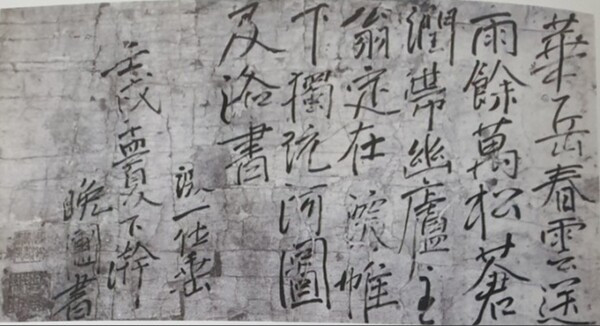 華岳春雲送
雨餘萬松蒼
潤帶幽廬主
翁定在深帷
下獨玩河圖
及洛書
一仕
壬戌孟夏下澣
晚圃書